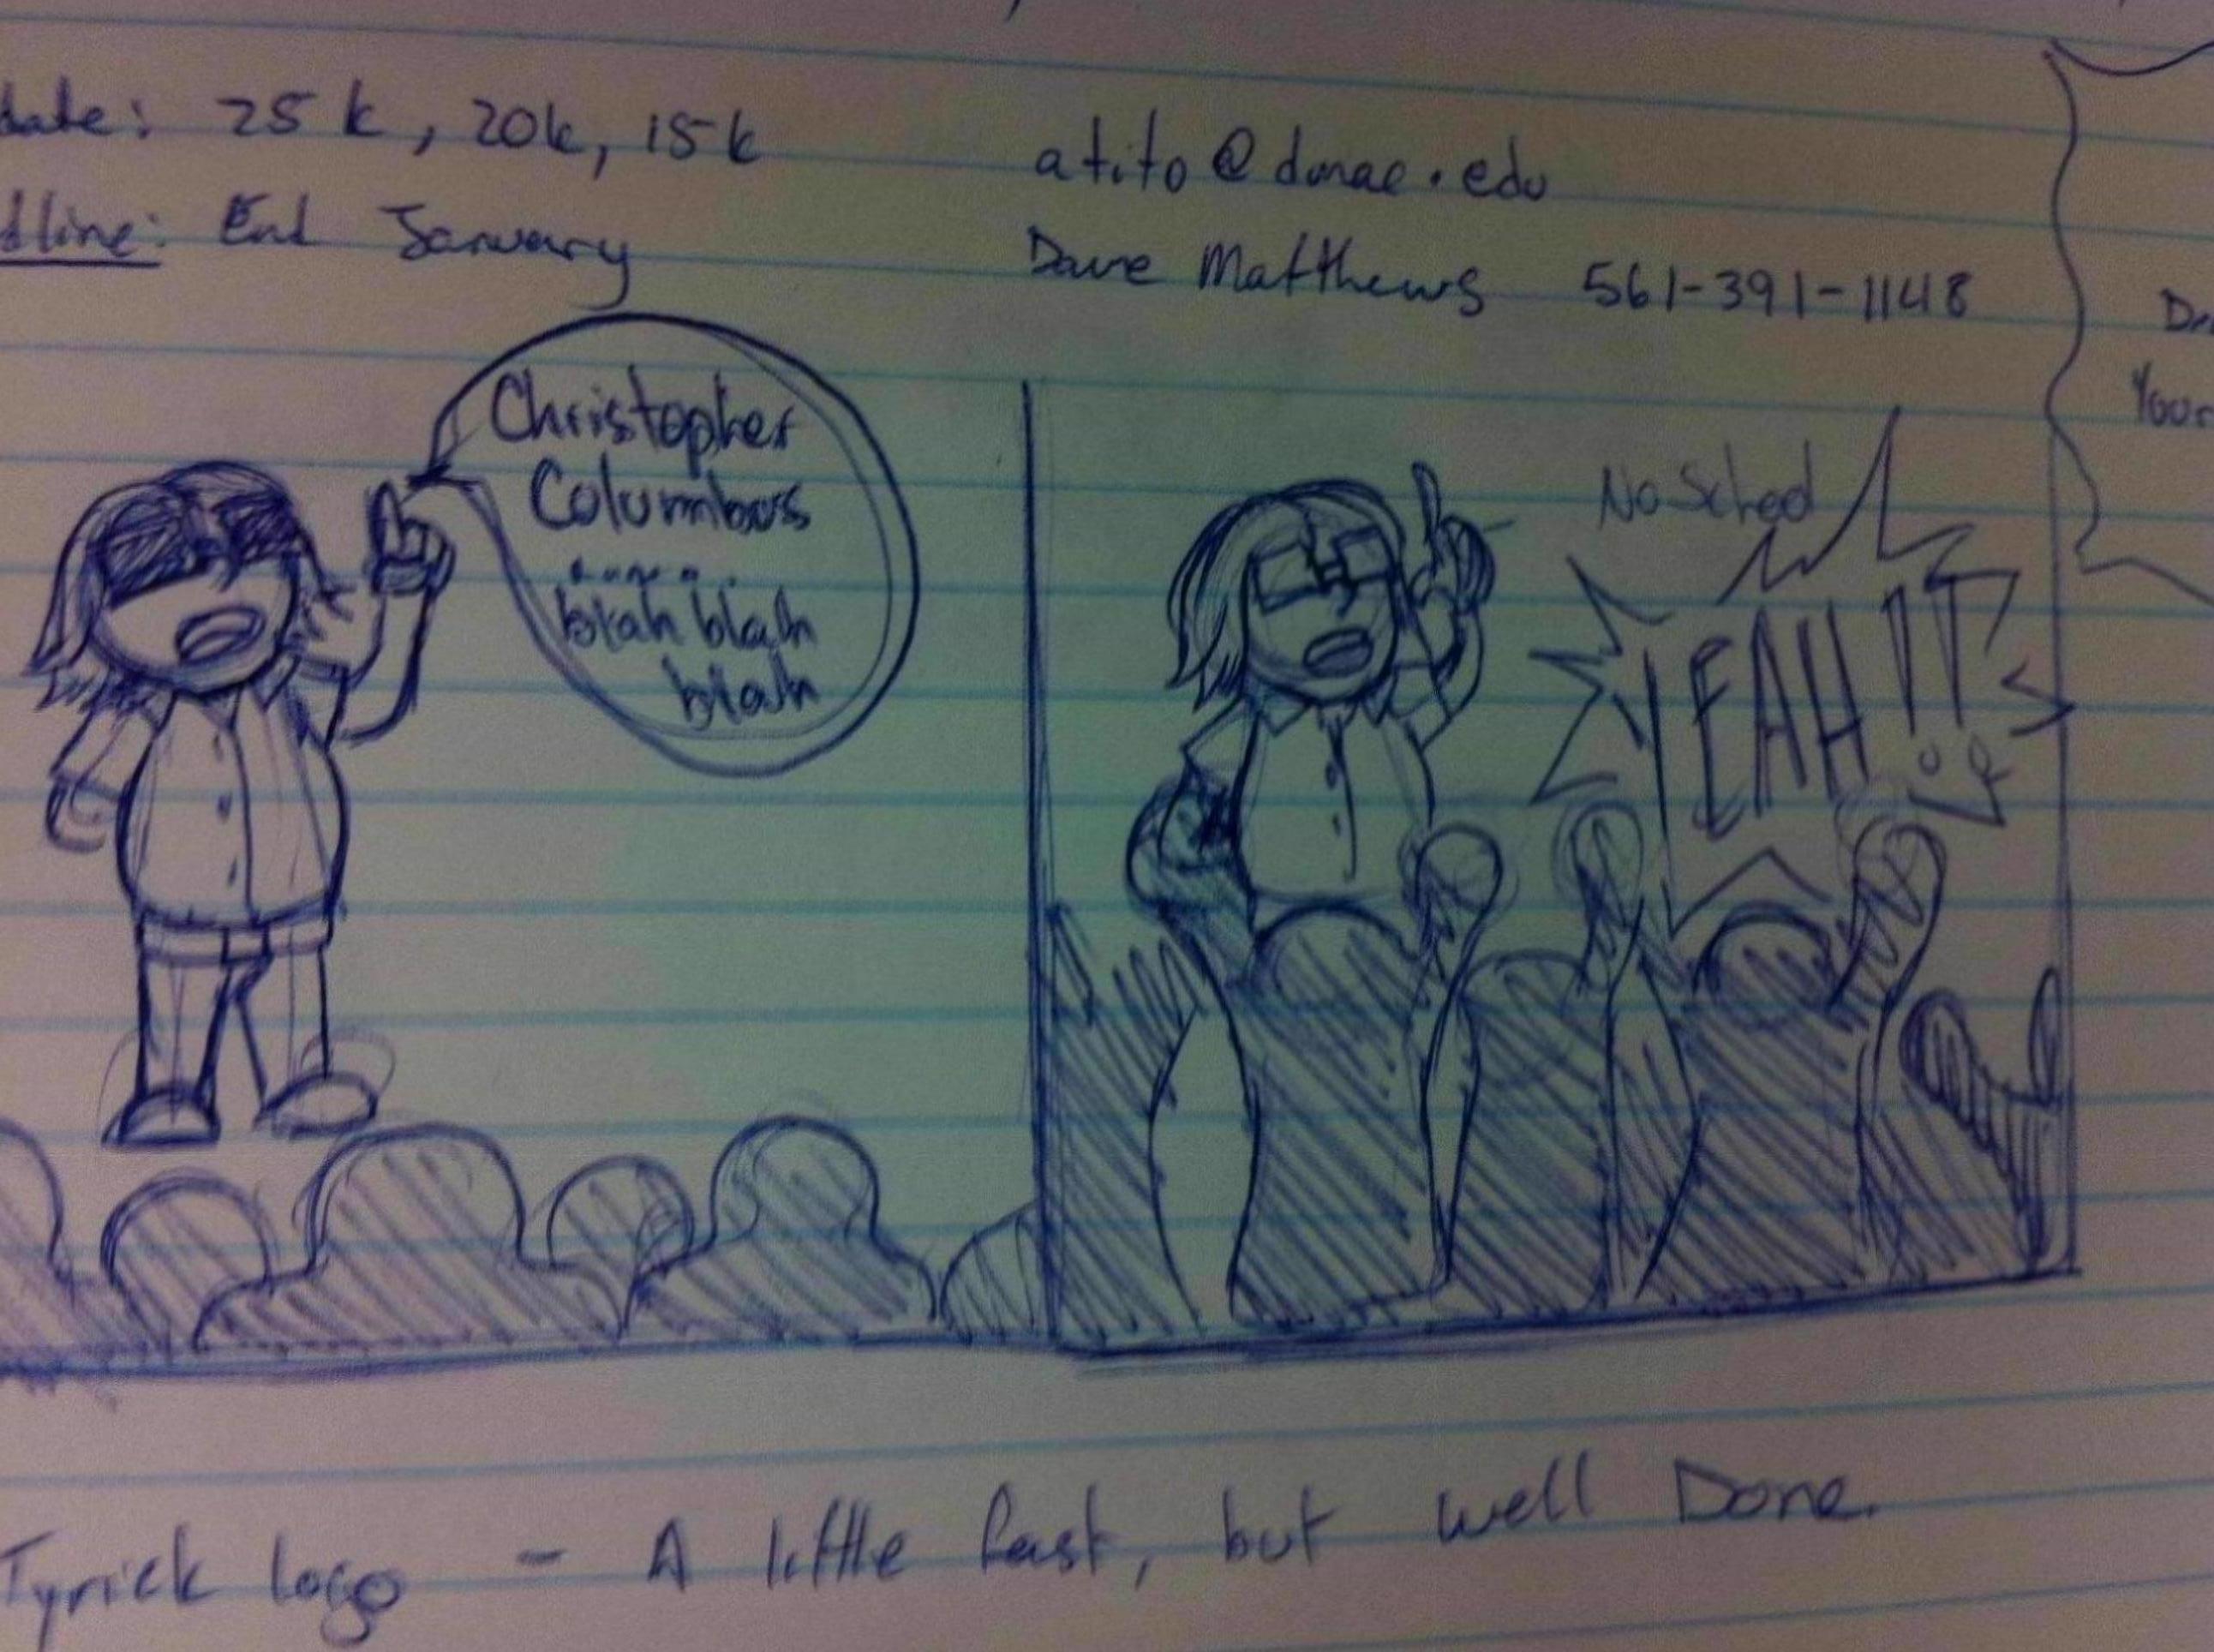 date: 25k, 20k, 15k
dline: End January
atito@dmac.edu
Dave Matthews 561-391-1148
Christopher
Columbus
.....
blah blah
blah
No Sched
YEAH!!
Your
Tyrick logo - A little fast, but well Done.